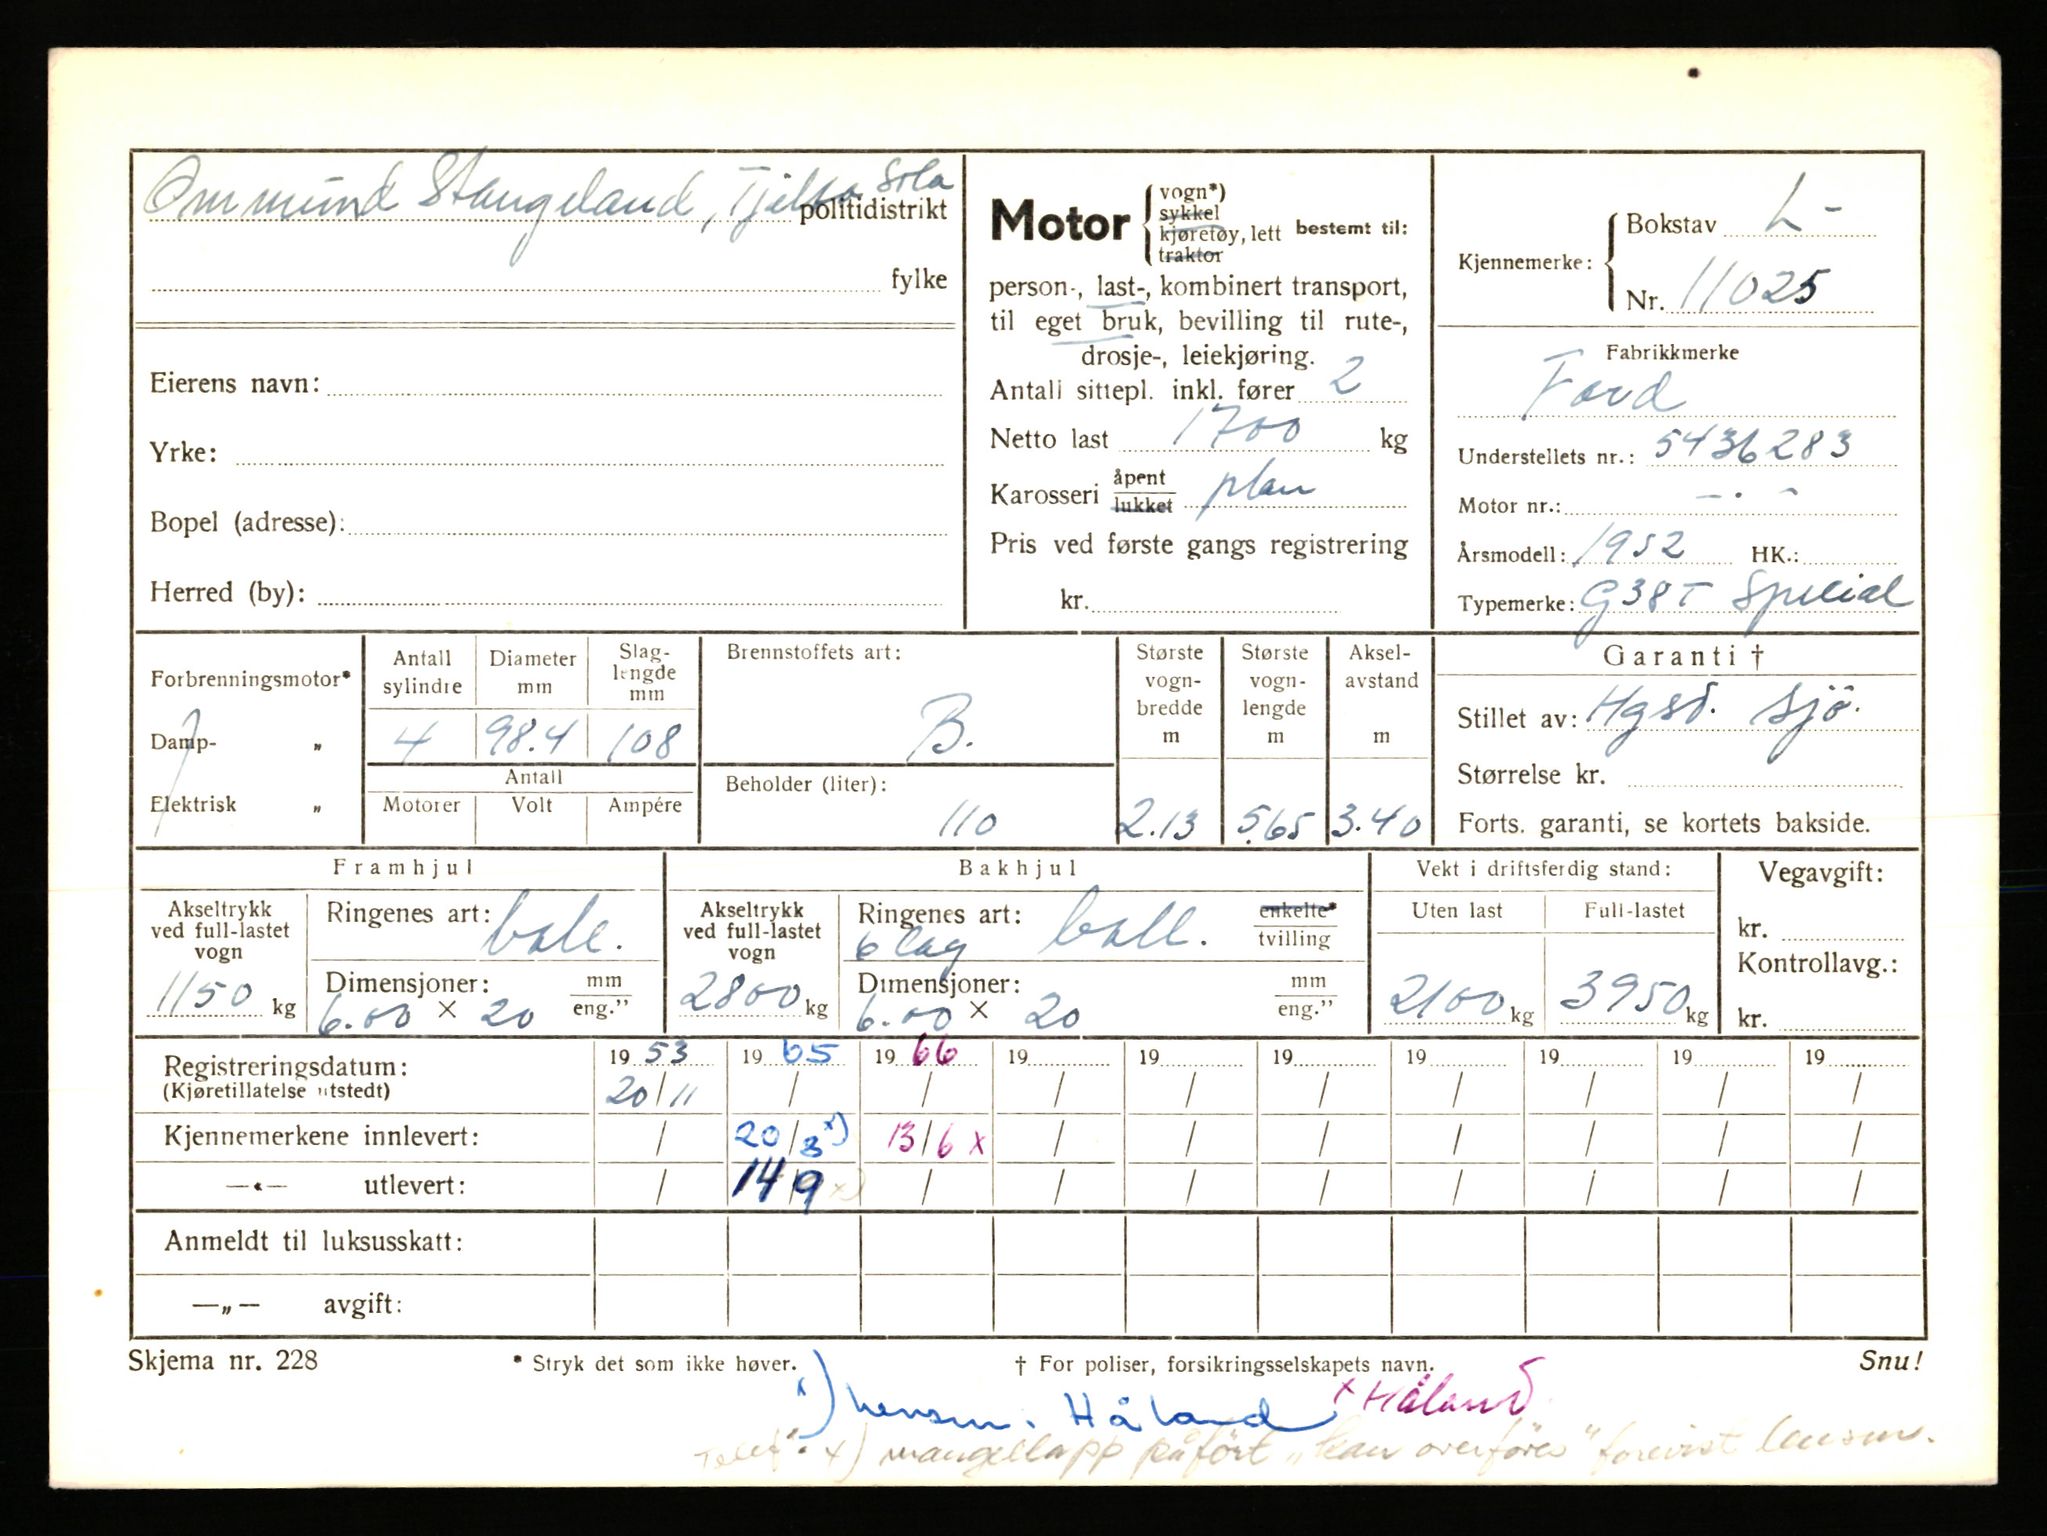 Ommund Stangeland, Tjelta Sola
politidistrikt
fylke
Eierens navn:
Yrke:
Bopel (adresse):
Herred (by):
Motor
vogn*)
sykkel
kjøretøy, lett
traktor
bestemt til:
person-, last-, kombinert transport,
til eget bruk, bevilling til rute-,
drosje-, leiekjøring.
Antall sittepl. inkl. fører 2
Netto last 1700 kg
Karosseri åpent lukket plan
Pris ved første gangs registrering
kr.
Kjennemerke:
Bokstav L-
Nr. 11025
Fabrikkmerke
Ford
Understellets nr.: 5436283
Motor nr.: - . -
Årsmodell: 1952 HK.:
Typemerke: G38T Special
Forbrenningsmotor*
Damp- „
Elektrisk „
Antall sylindre
Diameter mm
Slaglengde mm
4 98.4 108
Antall
Motorer Volt Ampére
Brennstoffets art:
B.
Beholder (liter):
110
Største vognbredde m
2.13
Største vognlengde m
5.65
Akselavstand m
3.40
Garanti †
Stillet av: Hgsd. Sjö.
Størrelse kr.
Forts. garanti, se kortets bakside.
Framhjul
Akseltrykk ved full-lastet vogn
1150 kg
Ringenes art: ball.
Dimensjoner: mm eng."
6.00 × 20
Bakhjul
Akseltrykk ved full-lastet vogn
2800 kg
Ringenes art: 6 lag ball. enkelte* tvilling
Dimensjoner: mm eng."
6.00 × 20
Vekt i driftsferdig stand:
Uten last Full-lastet
2100 kg 3950 kg
Vegavgift:
kr.
Kontrollavg.:
kr.
Registreringsdatum: 19 53 19 65 19 66 19 19 19 19 19 19 19
(Kjøretillatelse utstedt) 20/11 / / / / / / / / /
Kjennemerkene innlevert: / 20/8 x) 13/6 x / / / / / / /
—«— utlevert: / 14/9 x) / / / / / / / /
Anmeldt til luksusskatt:
—„— avgift:
Skjema nr. 228
* Stryk det som ikke høver.
† For poliser, forsikringsselskapets navn.
Snu!
x) lensm. Håland x Håland
Telef. x) mangellapp påført „kan overføres" forevist lensm.